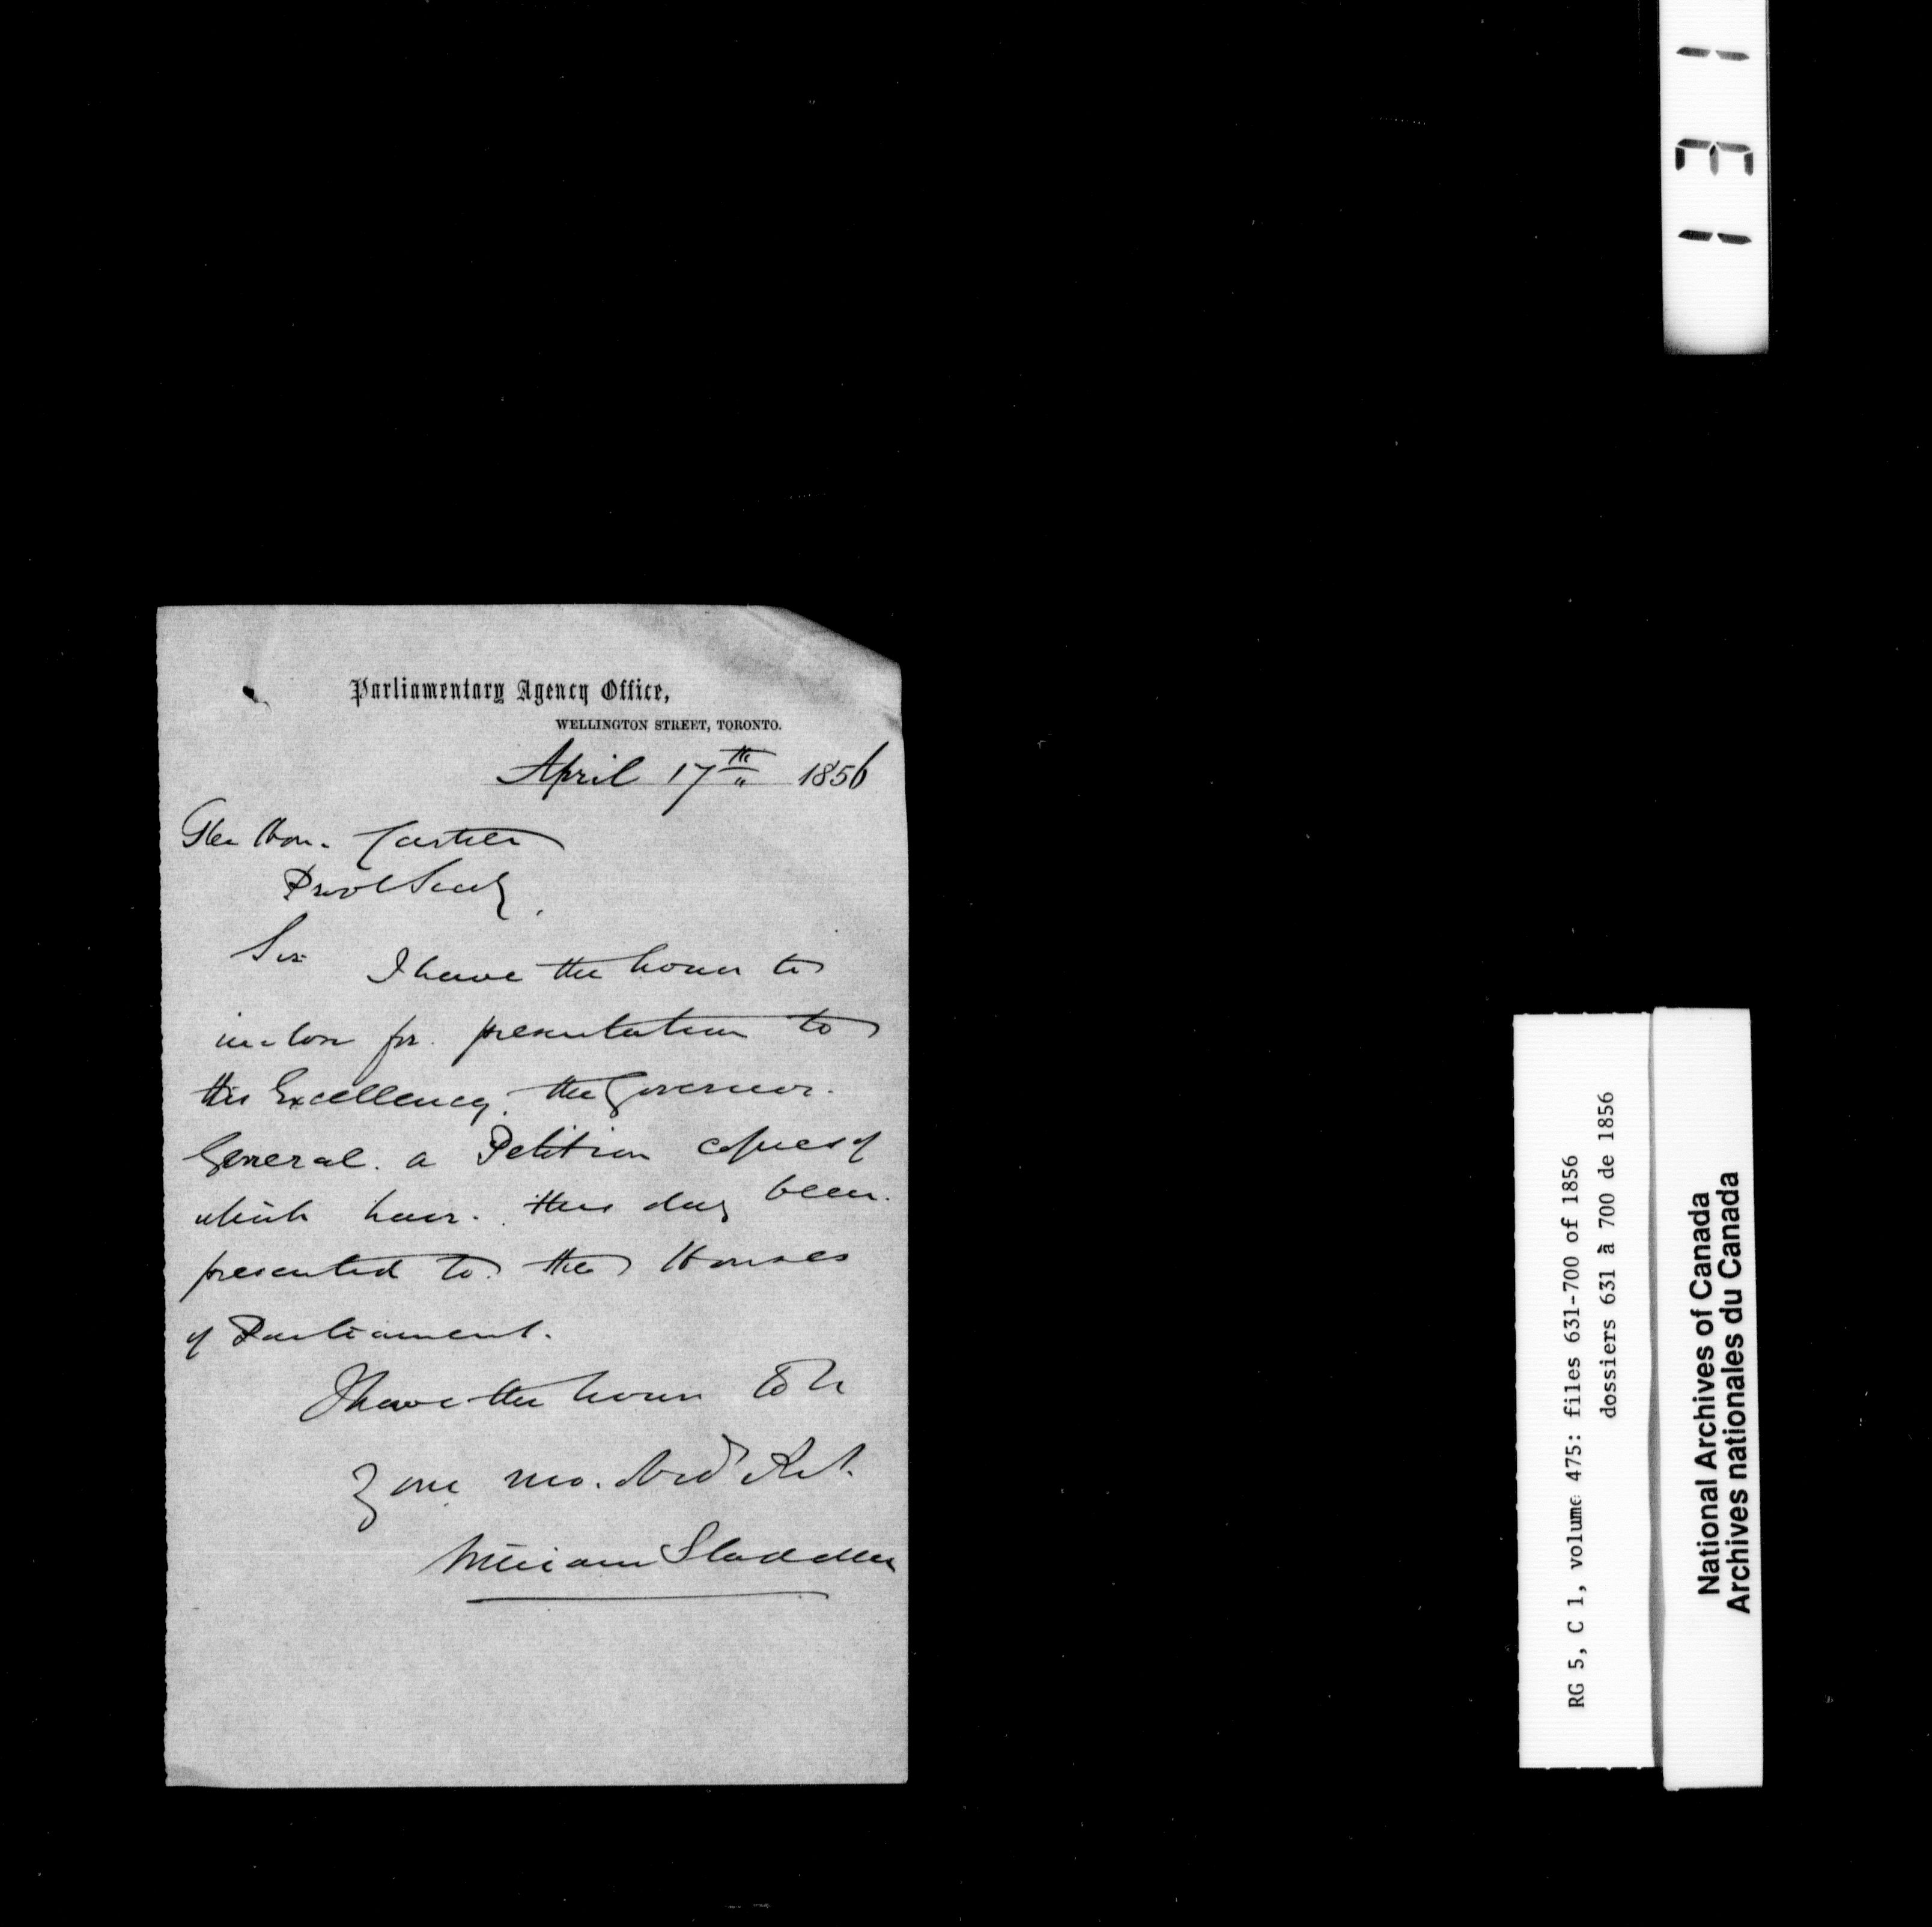 Parliamentary Agency Office,
WELLINGTON STREET, TORONTO.
April 17th 1856
The Hon. Cartier
Provl Secy.
Sir I have the honor to
inclose for presentation to
His Excellency the Governor
General a Petition copies of
which have this day been
presented to the Houses
of Parliament.
I have the honor to be
Your mo. obed
William
131
RG 5, C 1, volume 475: files 631-700 of 1856
dossiers 631 à 700 de 1856
National Archives of Canada
Archives nationales du Canada